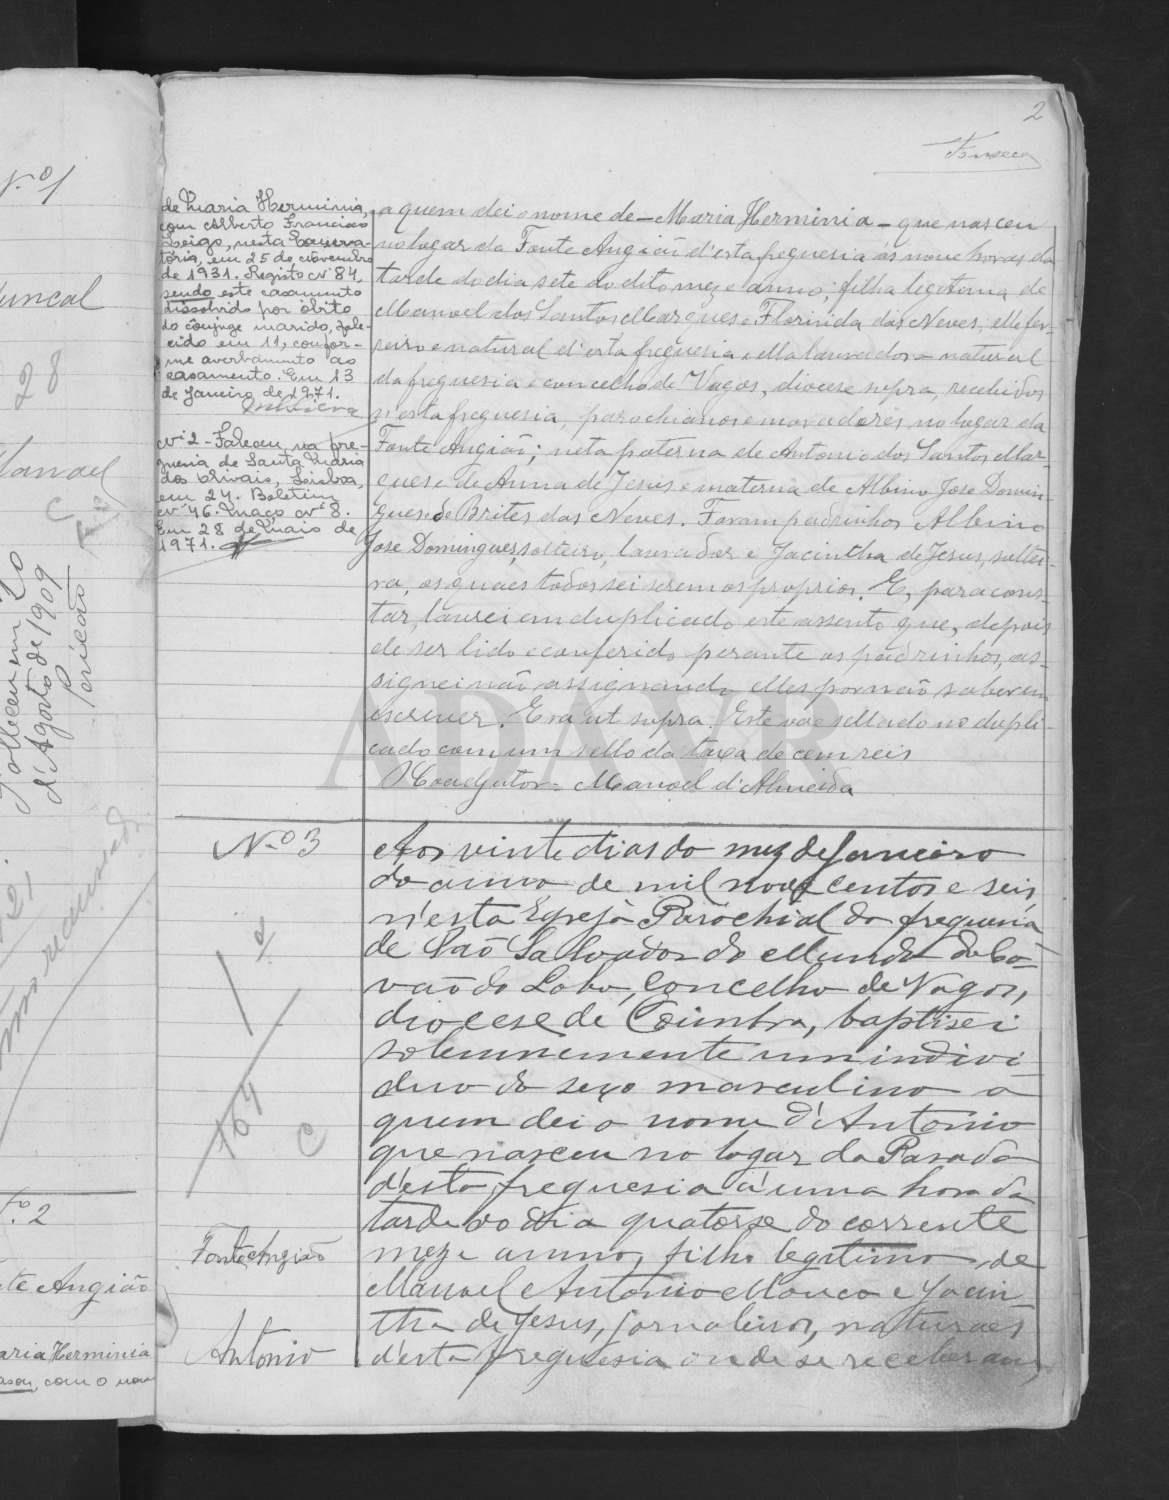 2
Fonseca
N.º 1
Juncal
28
Manoel
C
Falleceu em 20
d'Agosto de 1909
N.º 2
Fonte Angião
Maria Herminia
casou, com o nome
de Maria Herminia,
com Alberto Francisco
Leigo, nesta Conserva-
tória, em 25 de Novembro
de 1931. Registo nº 84,
sendo este casamento
dissolvido por óbito
do cônjuge marido, fale-
cido em 11, confor-
me averbamento ao
casamento. Em 13
de Janeiro de 1971.
Nº 2 - Faleceu na fre-
guesia de Santa Maria
dos Olivais, Lisboa,
em 24. Boletim
nº 46. Maço nº 8.
Em 28 de Maio de
1971.
a quem dei o nome de - Maria Herminia - que nasceu
no logar da Fonte Angião d'esta freguesia ás nove horas da
tarde do dia sete do dito mez e anno; filha legitima de
Manoel dos Santos Marques e Florinda das Neves, elle fer-
reiro e natural d'esta freguesia e ella lavradora natural
da freguesia e concelho de Vagos, diocese supra, recebidos
n'esta freguesia, parochianos e moradores no logar da
Fonte Angião; neta paterna de Antonio dos Santos Mar-
ques e de Anna de Jesus e materna de Albino José Domin-
gues e de Brites das Neves. Foram padrinhos Albino
José Domingues, solteiro, lavrador e Jacintha de Jesus, soltei-
ra, os quaes todos sei serem os proprios. E, para cons-
tar, lavrei em duplicado este assento que, depois
de ser lido e conferido perante os padrinhos, as-
signei não assignando elles por não saberem
escrever. Era ut supra. Este vae sellado no dupli-
cado com um sello da taxa de cem reis
O Coadjutor - Manoel d'Almeida
ADAVR
N.º 3
1º
164
C
Fonte Angião
Antonio
Aos vinte dias do mez de Janeiro
do anno de mil nove centos e seis,
n'esta Egreja Parochial da freguesia
de São Salvador do Mundo de Co-
vão do Lobo, Concelho de Vagos,
diocese de Coimbra, baptisei
solemnemente um indivi-
duo do sexo masculino a
quem dei o nome d'Antonio
que nasceu no logar da Parada
d'esta freguesia á uma hora da
tarde do dia quatorse do corrente
mez e anno, filho legitimo de
Manoel Antonio Mouco e Jacin-
tha de Jesus, jornaleiros, naturaes
d'esta freguesia onde se receberam,